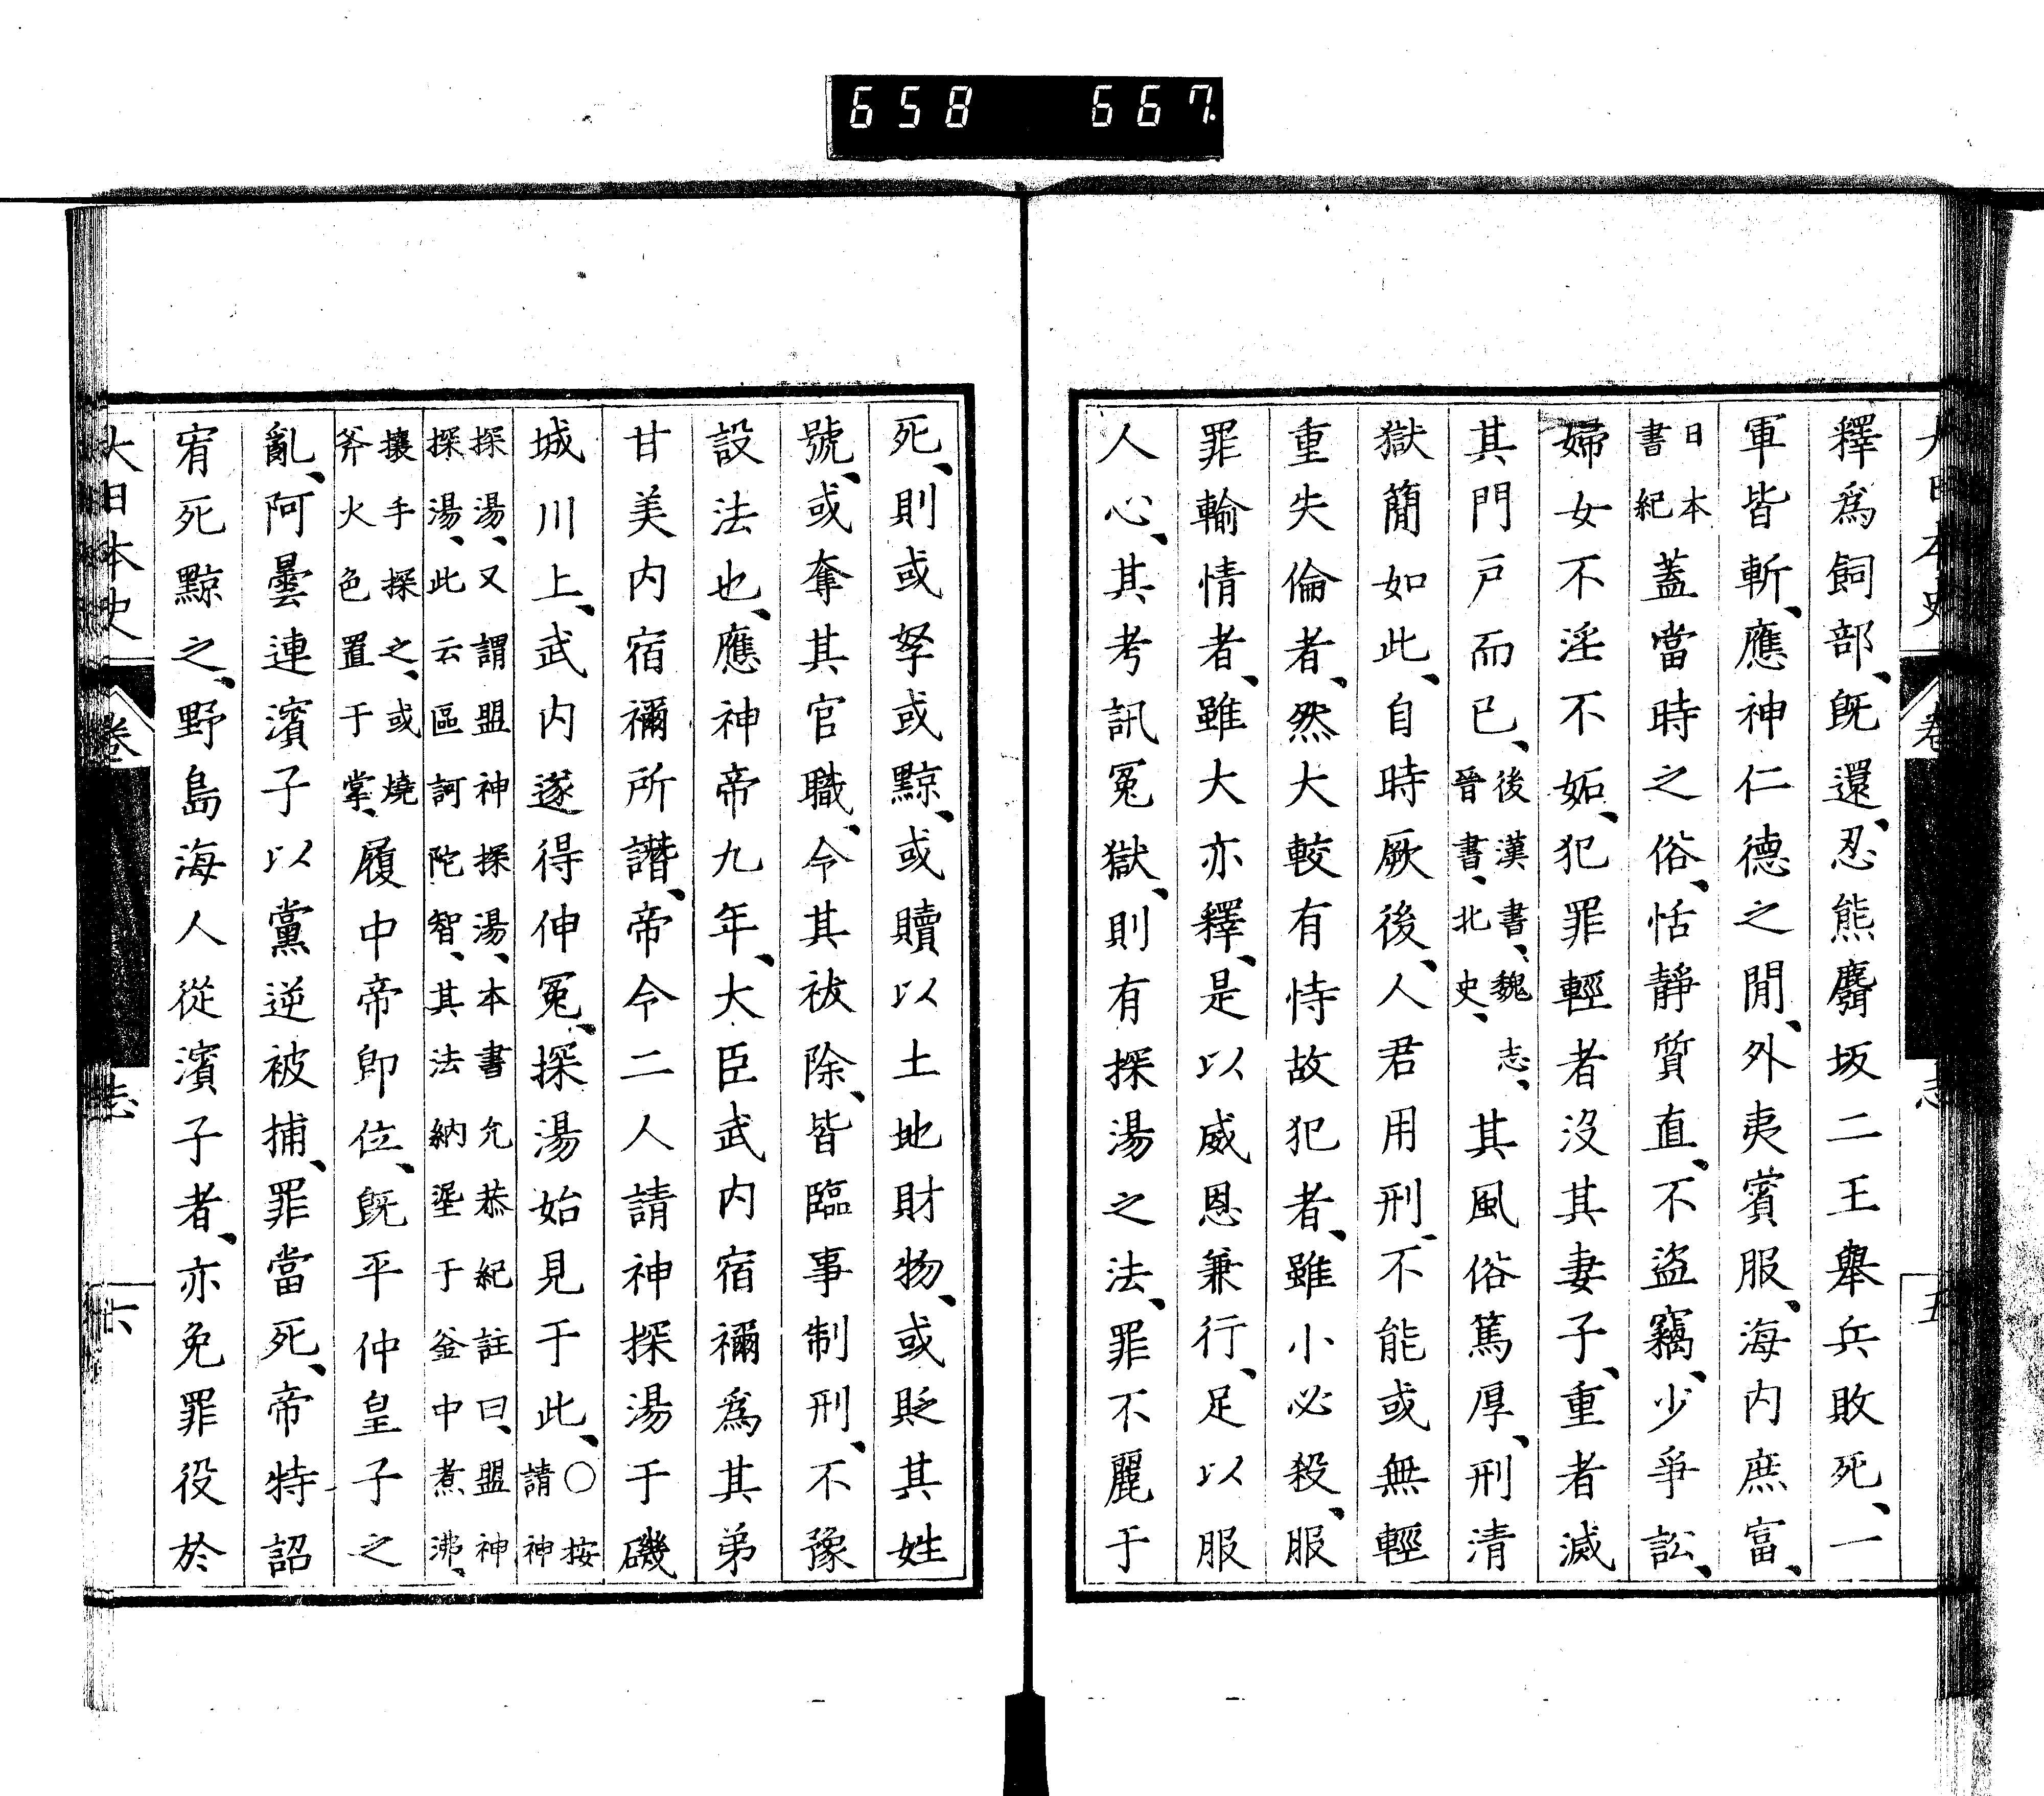 658 667
釋爲飼部、既還、忍熊麛坂二王舉兵敗死、一
軍皆斬、應神仁德之間、外夷賓服、海内庶富、
日本書紀蓋當時之俗、恬靜質直、不盜竊、少爭訟、
婦女不淫不妬、犯罪輕者沒其妻子、重者滅
其門戸而已、後漢書、魏志、晉書、北史、其風俗篤厚、刑清
獄簡如此、自時厥後、人君用刑、不能或無輕
重失倫者、然大較有恃故犯者、雖小必殺、服
罪輸情者、雖大亦釋、是以威恩兼行、足以服
人心、其考訊冤獄、則有探湯之法、罪不麗于
死、則或孥或黥、或贖以土地財物、或貶其姓
號、或奪其官職、令其祓除、皆臨事制刑、不豫
設法也、應神帝九年、大臣武内宿禰爲其弟
甘美内宿禰所譖、帝令二人請神探湯于磯
城川上、武内遂得伸冤、探湯始見于此、○按請神
探湯、又謂盟神探湯、本書允恭紀註曰、盟神
探湯、此云區訶陀智、其法納埿于釜中煮沸、
攘手探之、或燒斧火色置于掌、履中帝卽位、既平仲皇子之
亂、阿曇連濱子以黨逆被捕、罪當死、帝特詔
宥死黥之、野島海人從濱子者、亦免罪役於
大日本史 卷 志 六